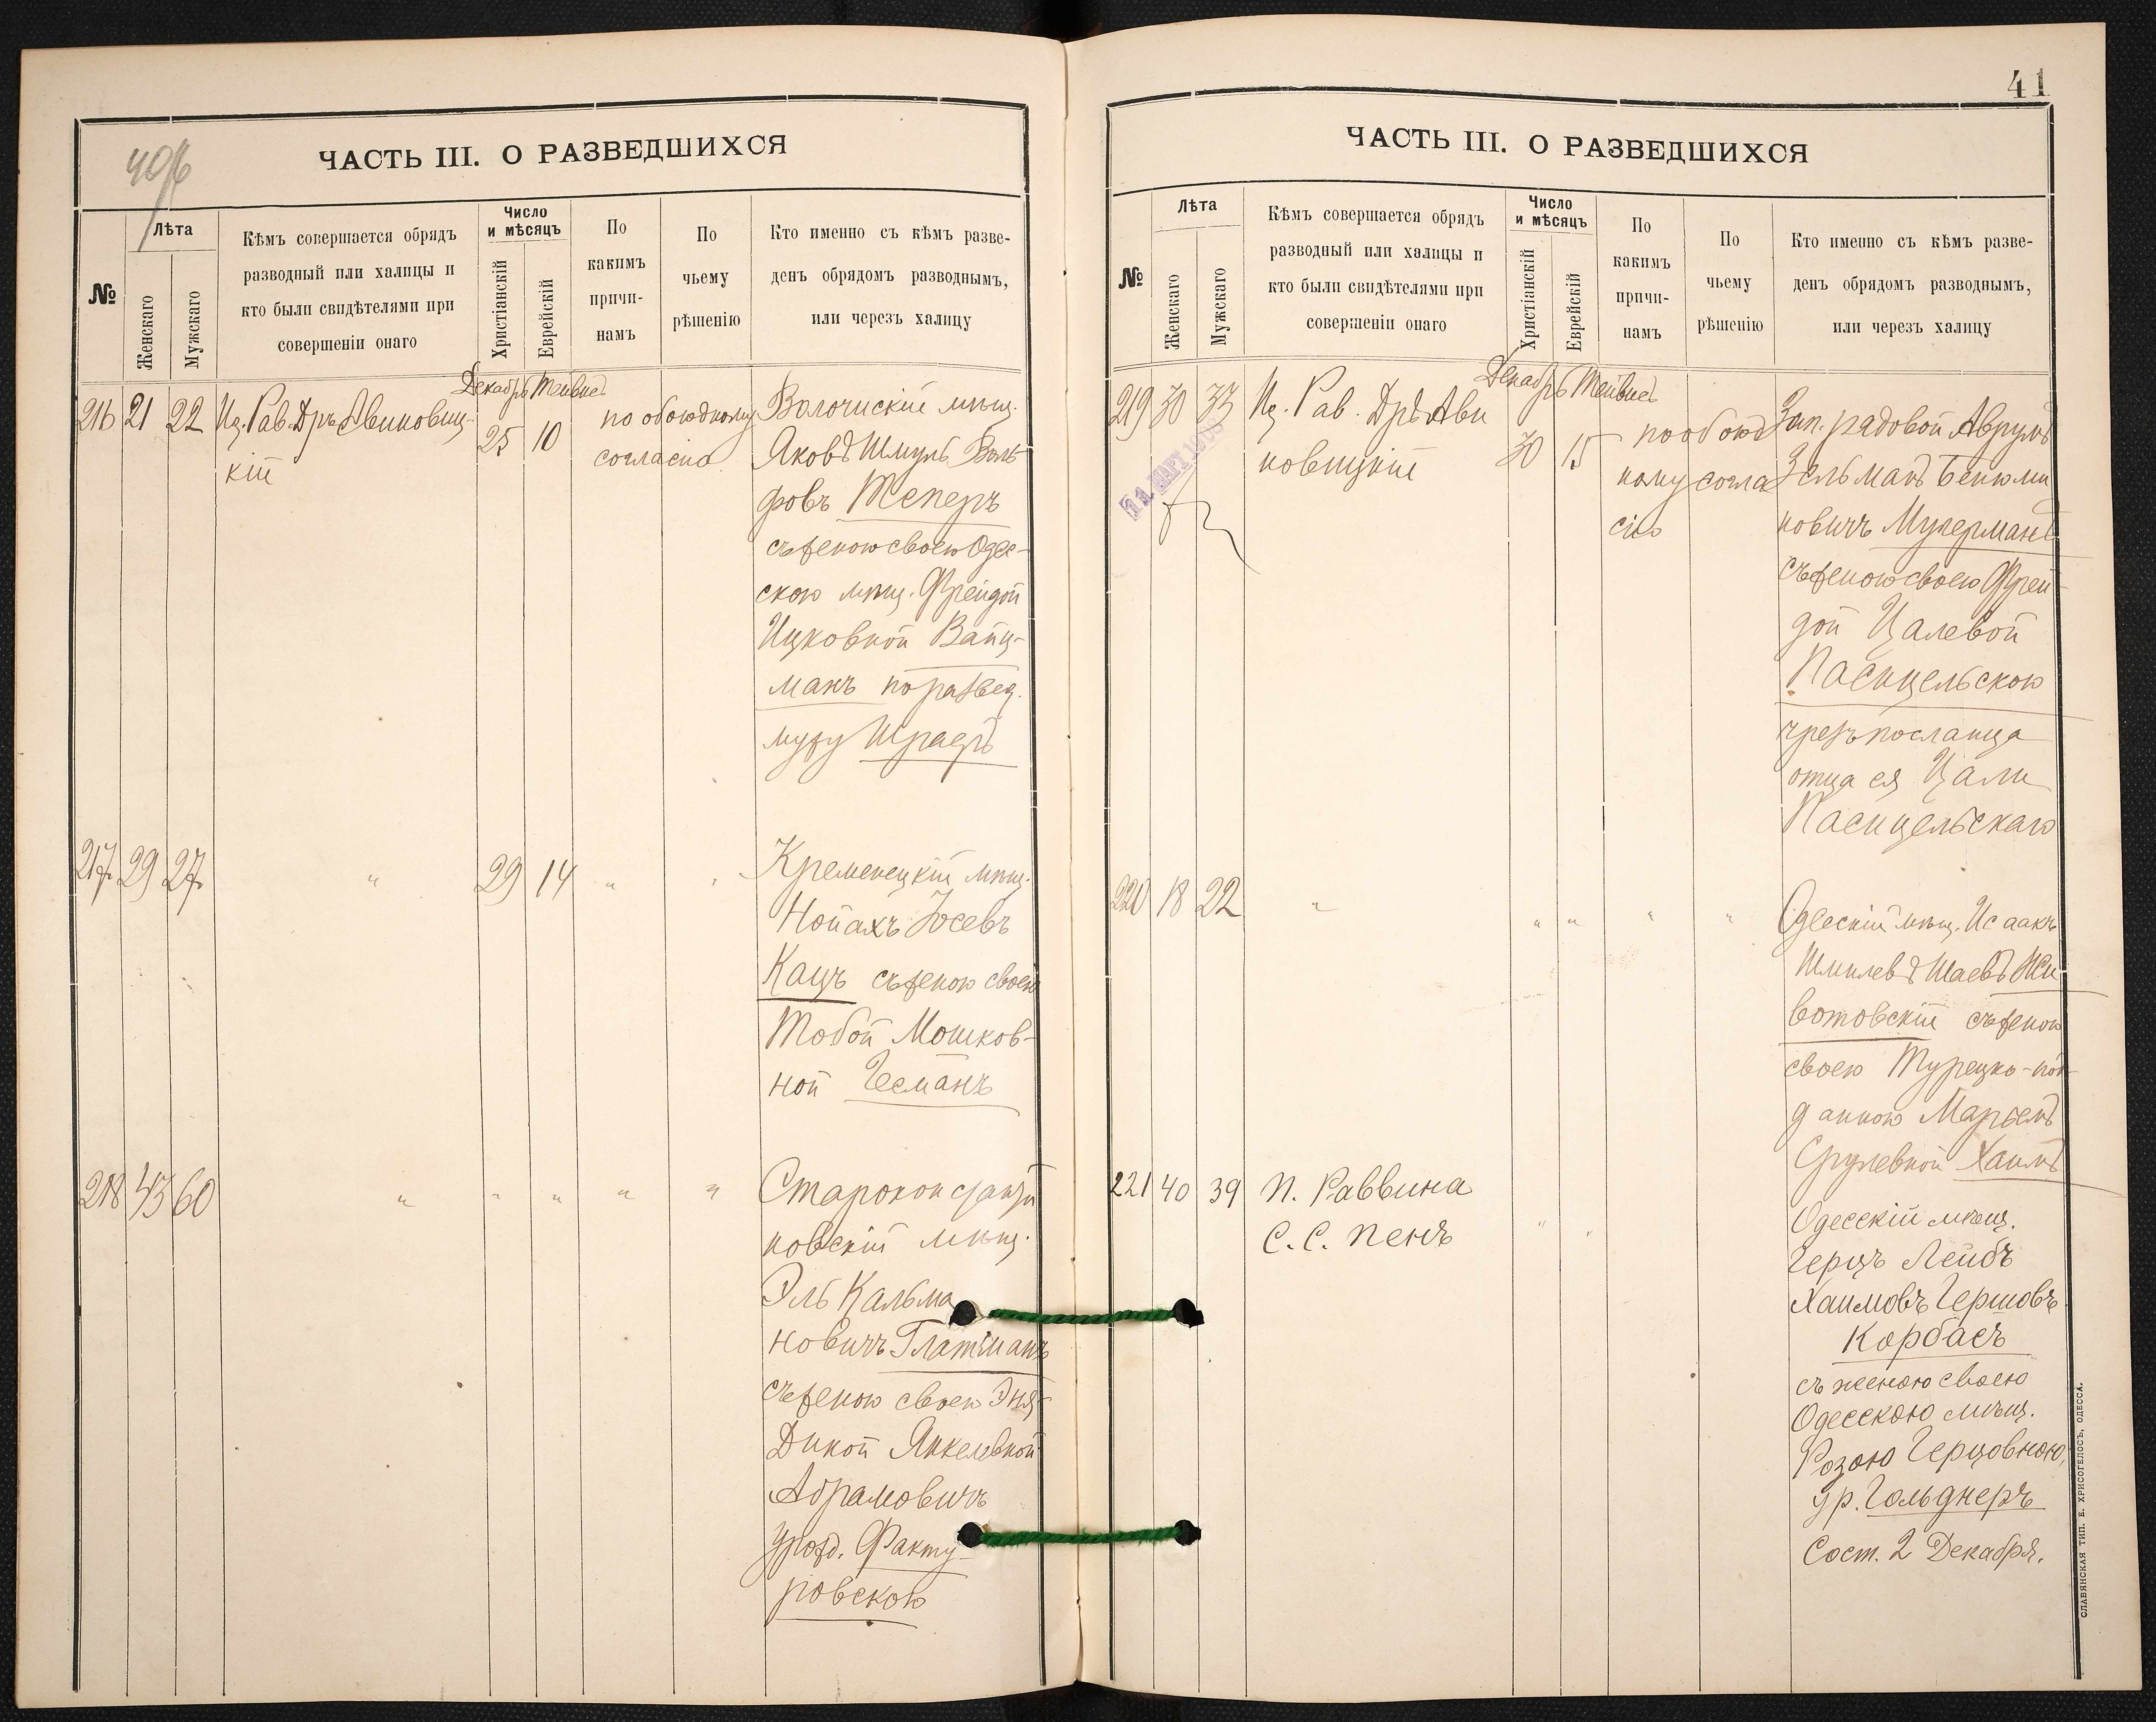 ЧАСТЬ III. О РАЗВЕДШИХСЯ
№
Лѣта
Женскаго
Мужскаго
Кѣмъ совершается обрядъ
разводный или халицы и
кто были свидѣтелями при
совершеніи онаго
Число
и мѣсяцъ
Христіанскій
Еврейскій
По
какимъ
причи-
намъ
По
чьему
рѣшенію
Кто именно съ кѣмъ разве-
денъ обрядомъ разводнымъ,
или черезъ халицу
Декабрь Тейвисъ
216 21 22 Ис. Рав. Дръ Авиновиц-
кій
25 10
по обоюдному
согласію
Волочискій мѣщ.
Яковъ Шмуль Воль-
фовъ Теперъ
съ женою своею Одес-
скою мѣщ. Фрейдой
Ицковной Вайц-
манъ по развед.
мужу
217 29 27 " 29 14 " "
Кременецкій мѣщ.
Нойахъ Юсевъ
Кацъ съ женою своей
Тобой Мошков-
ной Гесманъ
218 43 60 " " " " "
Староконстанти
новскій мѣщ.
Эль Кальма
новичъ Глатманъ
съ женою своею Эня-
Диной Янкелевной
Абрамовичъ
урожд. Факту-
ровскою
41
ЧАСТЬ III. О РАЗВЕДШИХСЯ
№
Лѣта
Женскаго
Мужскаго
Кѣмъ совершается обрядъ
разводный или халицы и
кто были свидѣтелями при
совершеніи онаго
Число
и мѣсяцъ
Христіанскій
Еврейскій
По
какимъ
причи-
намъ
По
чьему
рѣшенію
Кто именно съ кѣмъ разве-
денъ обрядомъ разводнымъ,
или черезъ халицу
Декабрь Тейвисъ
219 30 33 Ис. Рав. Дръ Ави
новицкій
30 15
по обоюд
ному согла
сію
Зап. рядовой Аврумъ
Зельманъ Бенюми
новичъ Мукерманъ
съ женою своею Фрей-
дой Цалевой
Пасицельскою
чрезъ посланца
отца ея Цали
Пасицельскаго
220 18 22 " " " " "
Одесскій мѣщ. Исаакъ
Шмилевъ Шаевъ Жи
вотовскій съ женою
своею Турецко-под-
данною Марьемъ
Срулевной Хаимъ
221 40 39 П. Раввина
С. С. Пенъ
" "
Одесскій мѣщ.
Герцъ Лейбъ
Хаимовъ Гершовъ
Корбасъ
съ женою своею
Одесскою мѣщ.
Розою Герцовною,
ур. Гольднеръ
Сост. 2 Декабря.
СЛАВЯНСКАЯ ТИП. Е. ХРИСОГЕЛОСЪ, ОДЕССА.